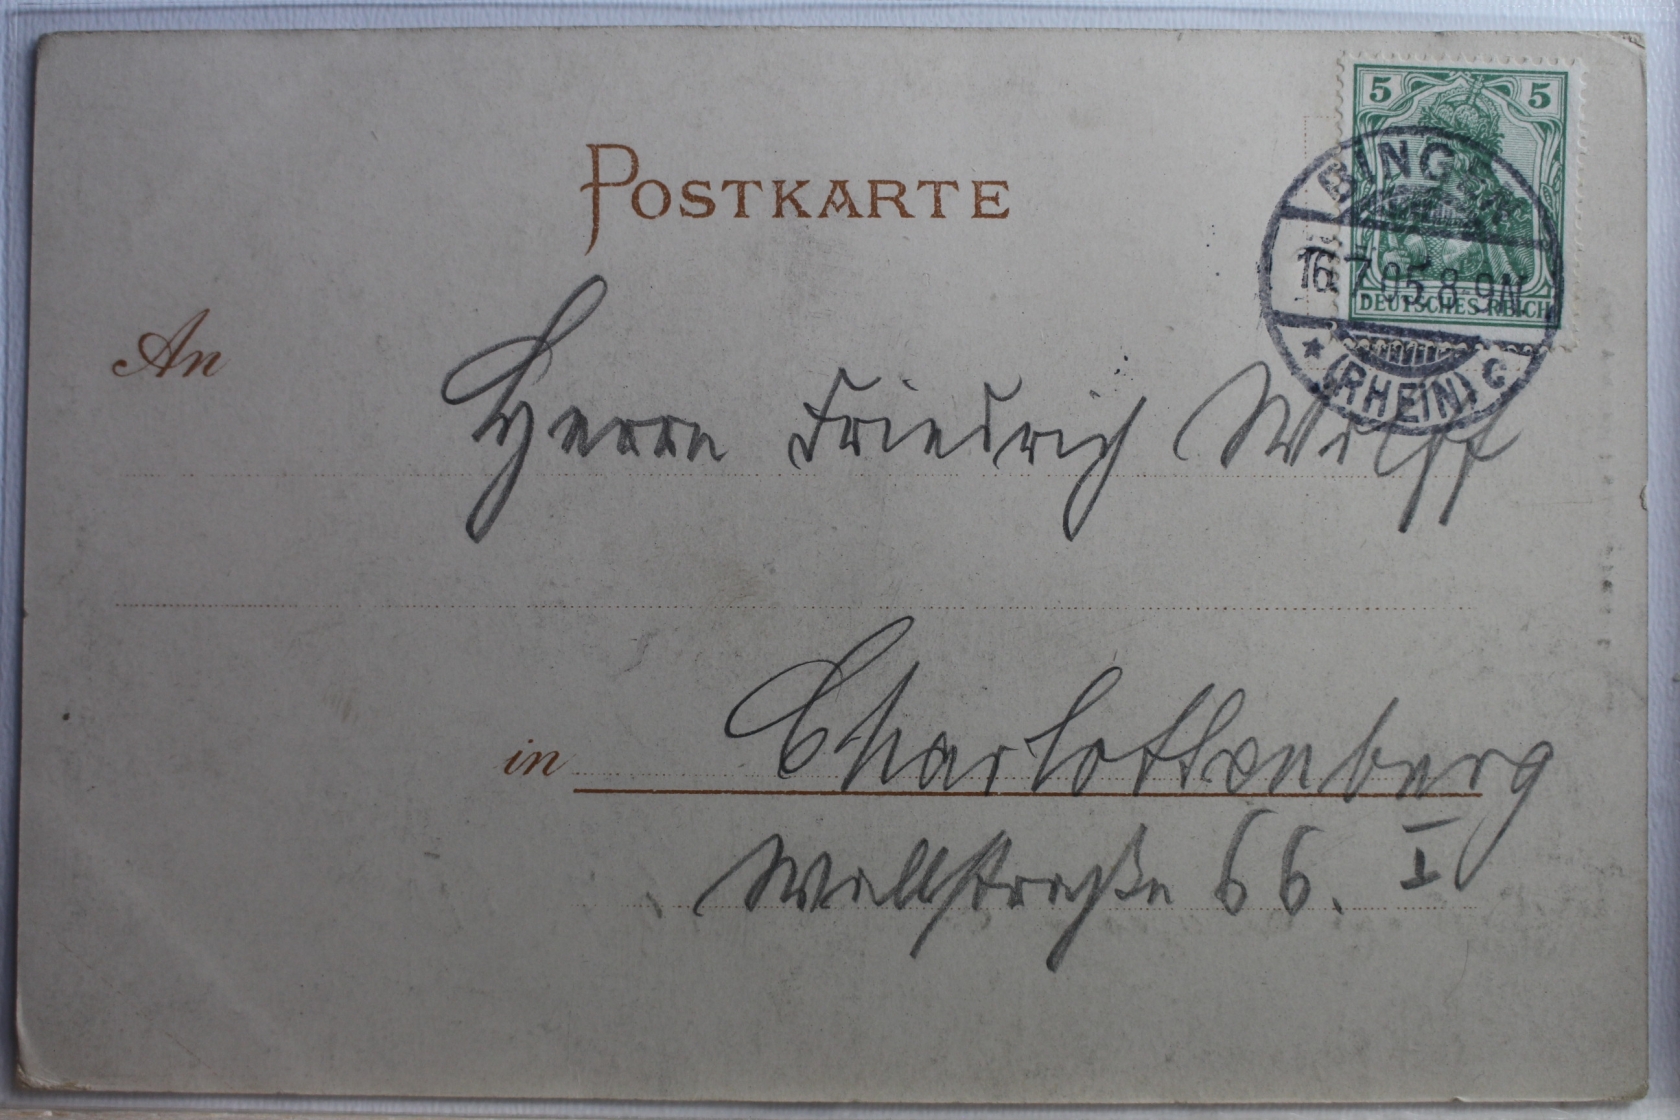 5 5
DEUTSCHES REICH
BINGEN
16.7.05.8-9N
★ (RHEIN) C
POSTKARTE
An
Herrn Friedrich Wulff
in Charlottenberg
Wallstraße 66. I